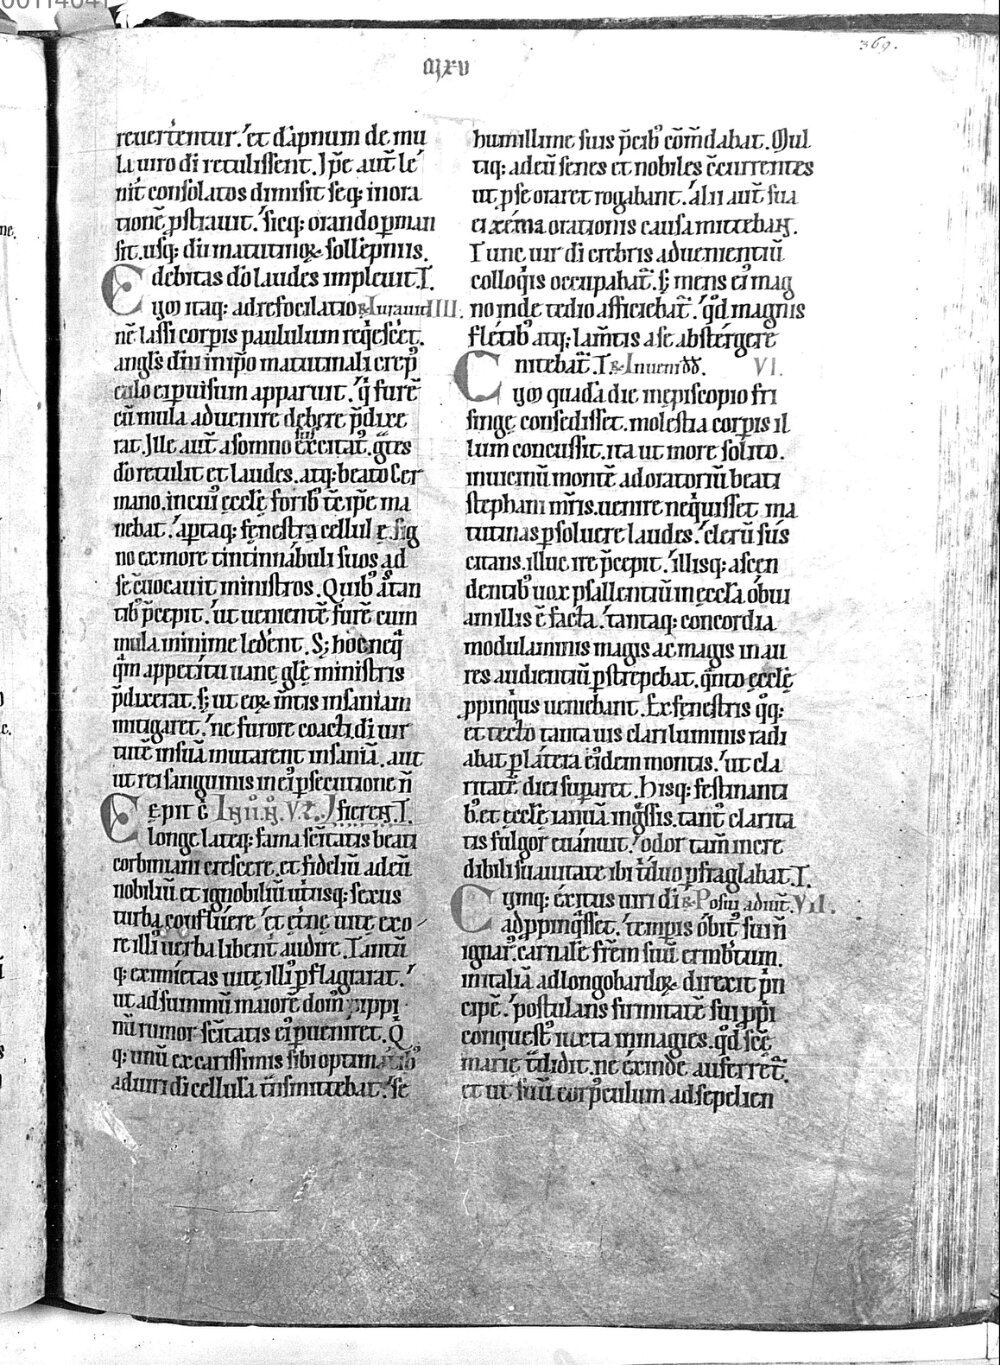 369.
reuertentur. et dāpnum de mu
la uiro dī retulissent. Ip̄e aut̄ le
nit̄ consolatos dimisit seq; in ora
tionē p̄strauit. sicq; orando p̱man
sit. usq; dū matutinoꝝ sollēpniis.
debitas dō laudes impleuit. L.
Cum itaq; ad refocilatio IIII.
nē lassi corpis paululum req̇escēt.
angls dn̄i in ip̄o matutinali crep̄
culo ei p̱uisum apparuit. q̇ furē
cū mula aduenire debere p̄dixe
rat. Ille aut̄ a somno excitat᷒. gr̄es
dō retulit et laudes. atq; beato Ger
mano. in cui᷒ eccl̄ę forib᷒ tc̄ ip̄e ma
nebat. aptaq; fenestra cellulę. sig
no ex more tintinnabuli suos ad
se c̄uocauit ministros. Quib᷒ astan
tib᷒ p̄cepit. ut uenientē furē cum
mula minime ledēnt. S; hoc neq̄
q̄m appetitu uanę glę ministris
p̄dixerat. s; ut eoꝝ m̄tis insaniam
mitigaret. ne furore coacti. di uir
tutē in suā mutarent insaniā. aut
ut rei sanguinis in ei᷒ p̱secutione n̄
Cępit ē fierent. L.
longe lateq; fama sc̄itatis beati
corbiniani crescere. et fideliū ad eū
nobiliū et ignobiliū ut̄usq; sexus
turba confluere et ei᷒ne uite exo
re illi᷒ uerba libent̄ audire. Tantū
q; eximietas uitę illi᷒ p̱flagrarat.
ut ad summū maiorē dom᷒ pippi
nū rumor sc̄itatis ei᷒ p̱ueniret. Q
q; unū ex carissimis sibi optimatib᷒
ad uiri di cellulā t̄nsmittebat. se
humillime suis p̄cib᷒ cōm̄dabat. Mul
tiq; ad eū senes et nobiles c̄currentes
ut p̱ se oraret rogabant. alii aut̄ sua
ei xenia orationis causa mittebaꝶ.
Tunc uir di crebris aduenientiū
colloq̇is occupabat̄. s; mens ei᷒ mag
no inde tedio afficiebat̄. q̇d magnis
fletib᷒ atq; lam̄tis a se abstergere
nitebat̄. L. VI.
Cum quadā die in ep̄iscopio fri
singę consedisset. molestia corpis il
lum concussit. ita ut more solito.
inuicinū montē ad oratoriū beati
stephani m̄ris. uenire neq̇uisset. ma
tutinas p̱soluere laudes. clerū suū
citans. illuc ire p̄cepit. illisq; ascen
dentib᷒ uox psallentiū in eccl̄a obui
am illis ē facta. tantaq; concordia
modulaminis magis ac magis in au
res audientiū p̱strepebat. q̄nto eccl̄ę
ppinq̇us ueniebant. Ex fenestris q̇q;
et tecto tanta uis clari luminis radi
abat p̱ platea ei᷒dem montis. ut cla
ritatē diei sup̱aret. Hisq; festinanti
b᷒. et eccl̄ę ianuā ingressis. tant᷒ clarita
tis fulgor euanuit. odor tam̄ incre
dibili suauitate ibi tduo p̱fraglabat. L.
Cumq; exitus uiri di VII.
adppinq̇sset. tempis obit᷒ sui n̄
ignar᷒. carnale fr̄em suū ermb̄tum.
in italiā ad longobardoꝝ direxit p̄n
cipē. postulans firmitatē sui pp̄i
conquest᷒ iuxta inmagies. q̇d sc̄ę
marię t̄didit. ne exinde auferret̄.
et ut suū corp̱culum ad sepelien